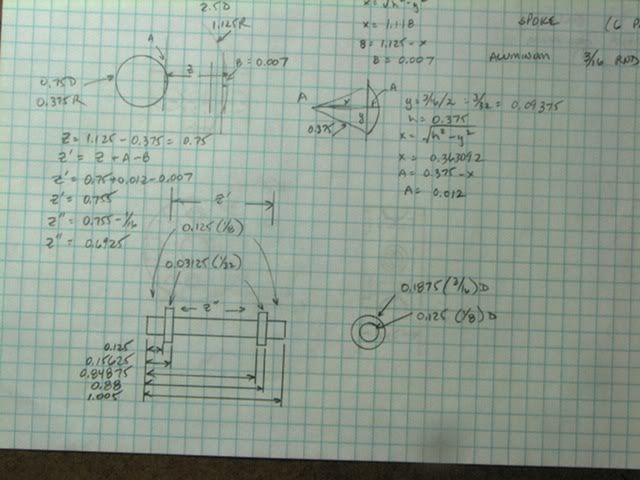 2.5D
1.125R
A
Z
B = 0.007
0.75D
0.375R
x = √h²-y²
x = 1.118
B = 1.125 - x
B = 0.007
SPOKE (6 P
ALUMINUM 3/16 RND
A
A
x
y
0.375
y = 3/16/2 = 3/32 = 0.09375
h = 0.375
x = √h²-y²
x = 0.363092
A = 0.375 - x
A = 0.012
Z = 1.125 - 0.375 = 0.75
Z' = Z + A - B
Z' = 0.75 + 0.012 - 0.007
Z' = 0.755
Z" = 0.755 - 1/16
Z" = 0.6925
Z'
0.125 (1/8)
0.03125 (1/32)
Z"
0.125
0.15625
0.84875
0.88
1.005
0.1875 (3/16) D
0.125 (1/8) D